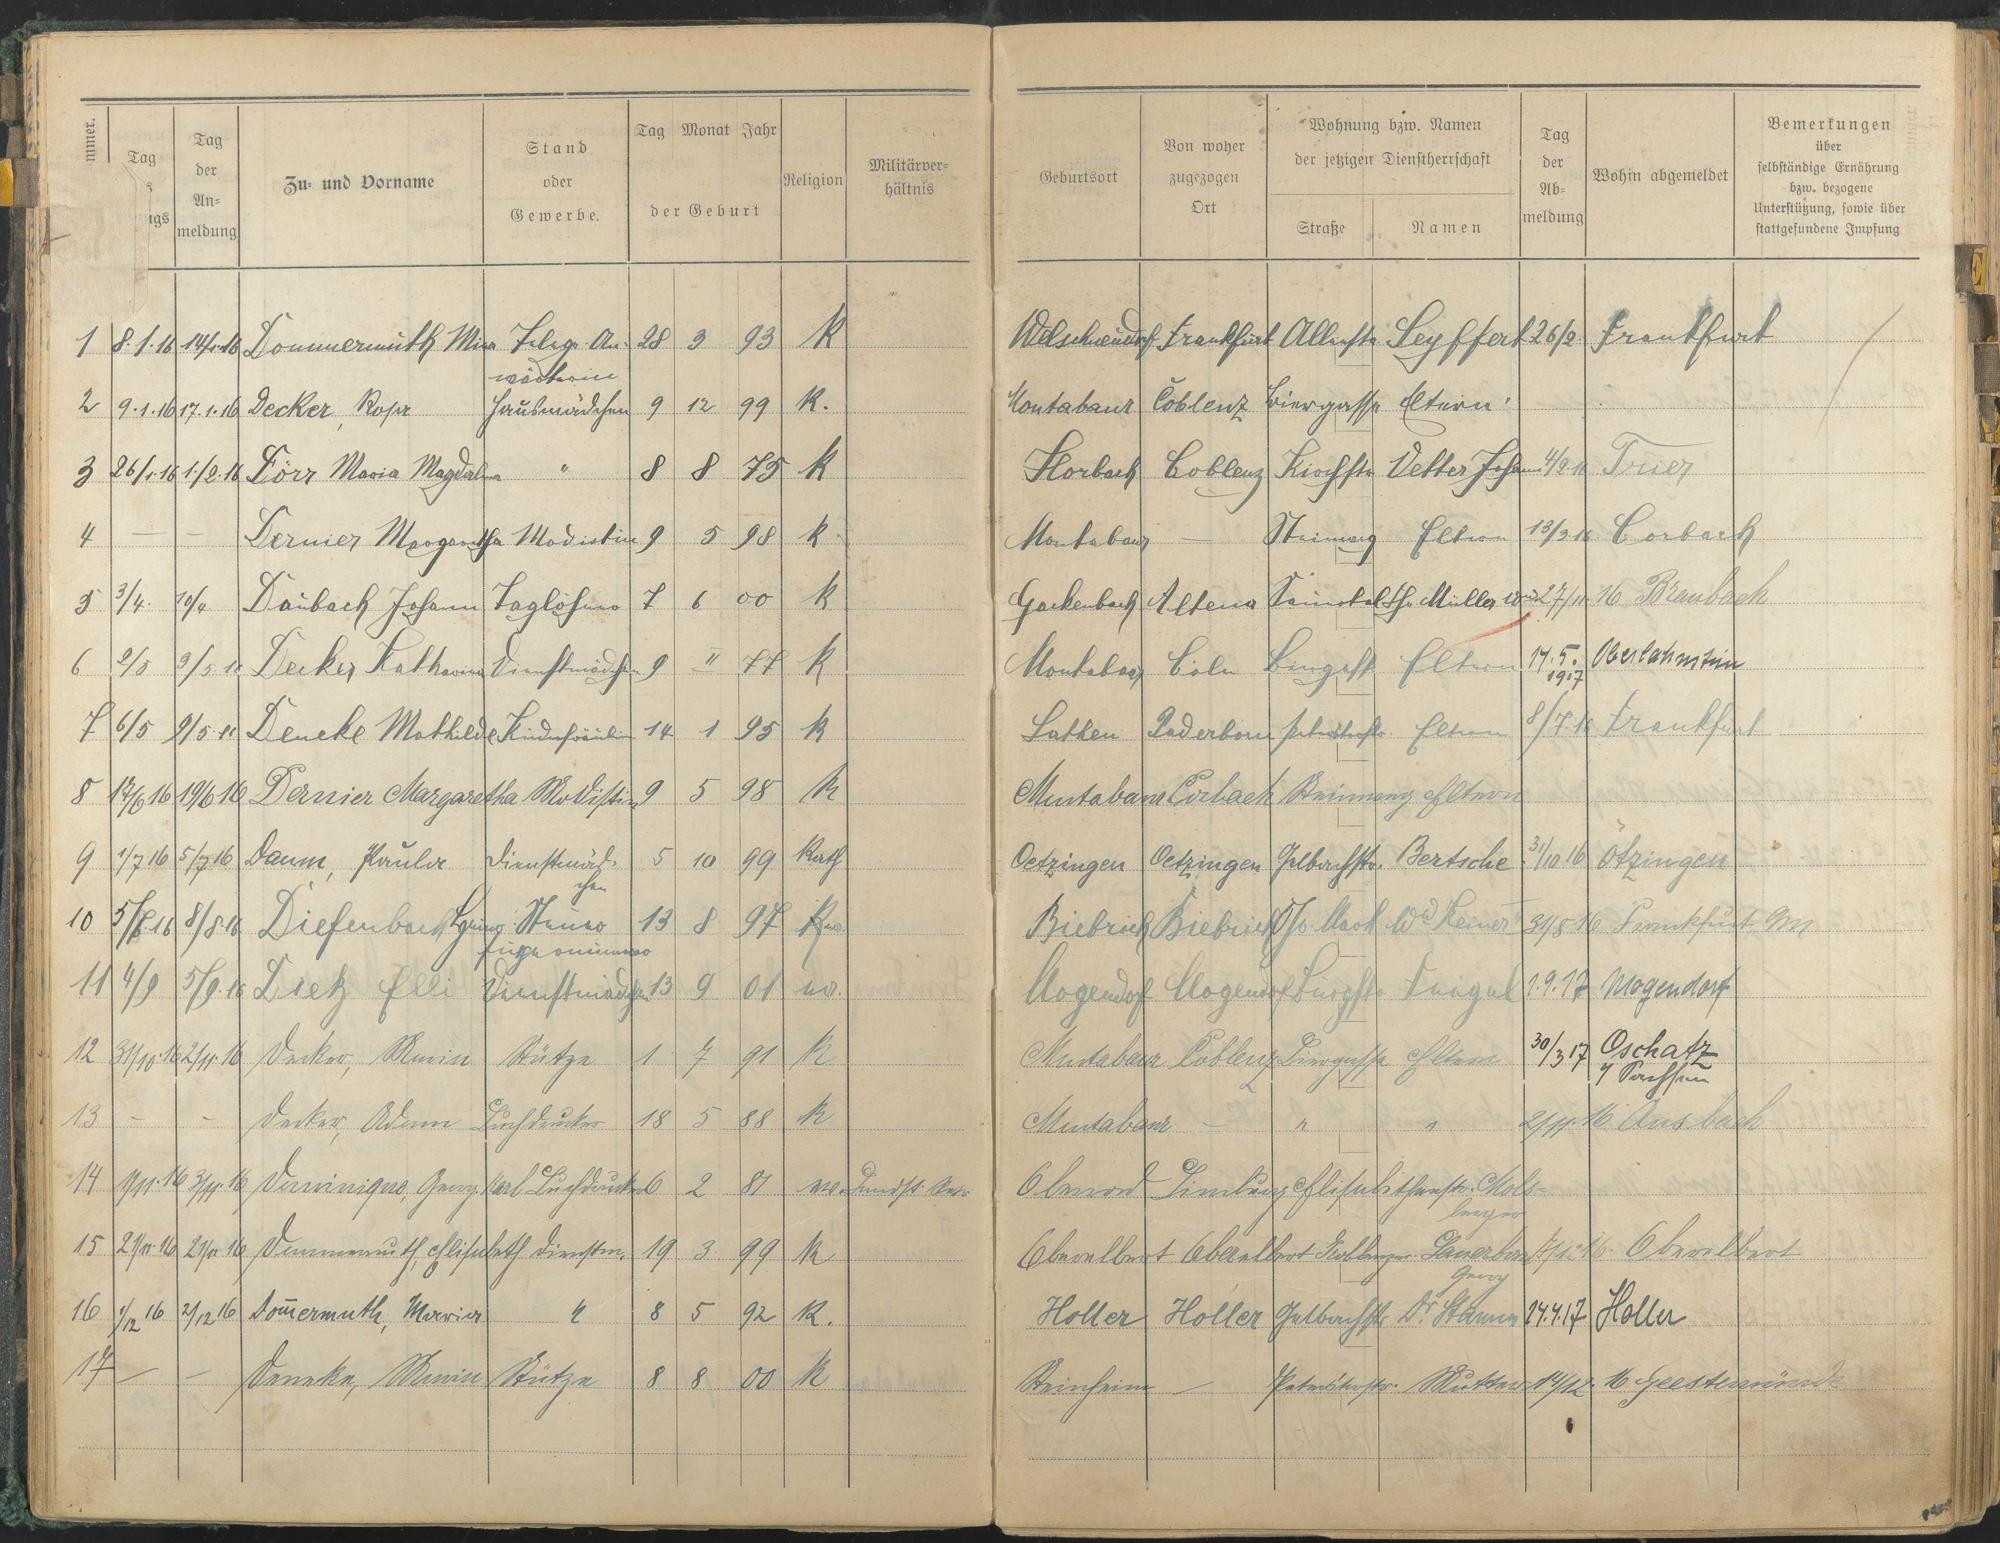 mmer.
Tag
igs
Tag
der
An-
meldung
Zu- und Vorname
Stand
oder
Gewerbe.
Tag Monat Jahr
der Geburt
Religion
Militärver-
hältnis
Geburtsort
Von woher
zugezogen
Ort
Wohnung bzw. Namen
der jetzigen Dienstherrschaft
Straße
Namen
Tag
der
Ab-
meldung
Wohin abgemeldet
Bemerkungen
über
selbständige Ernährung
bzw. bezogene
Unterstützung, sowie über
stattgefundene Impfung
1 8.1.16 14/1.16 Dommermuth Mina Telegr. An- 28 3 93 K Welschneudorf Frankfurt Alleestr Seyffert 26/2 Frankfurt
wärterin
2 9.1.16 17.1.16 Decker, Rosa Hausmädchen 9 12 99 K. Montabaur Coblenz Biergasse Eltern
3 26/1.16 1/2.16 Dörr Maria Magdalena " 8 8 75 K Horbach Coblenz Kirchstr Vetter Johann 4/2.16 Trier
4 — — Dernier Margaretha Modistin 9 5 98 K Montabaur — Steinweg Eltern 13/3.16 Corbach
5 3/4. 10/4 Daubach Johann Taglöhner 7 6 00 K Gackenbach Altena Müller 27/11 16 Braubach
6 2/5 9/5.16 Decker Katharina Dienstmädchen 9 II 77 K Montabaur Cöln Eltern 14.5. Oberlahnstein
1917
7 6/5 9/5.16 Deneke Mathilde Kinderfräulein 14 1 95 K Lathen Paderborn Peterstorstr. Eltern 8/7.16 Frankfurt
8 17/6 16 19/6 16 Dernier Margaretha Modistin 9 5 98 K Montabaur Corbach Steinweg Eltern
9 1/7 16 5/7 16 Daum, Paula Dienstmäd- 5 10 99 Kath Oetzingen Oetzingen Gelbachstr. Bertsche 31/10 16 Ötzingen
chen
10 5/8.16 8/8.16 Diefenbach 13 8 97 Biebrich Biebrich 31/8 16 Frankfurt a/M
11 4/9 5/9.16 Dietz Elli Dienstmädchen 13 9 01 ev. Mogendorf Mogendorf 1.9.17 Mogendorf
12 31/10.16 2/11.16 Decker, Maria Stütze 1 7 91 K Montabaur Coblenz Biergasse Eltern 30/3 17 Oschatz
i/ Sachsen
13 - - Decker, Adam Buchdrucker 18 5 88 K Montabaur — " " 2/11.16 Ansbach
14 1/11.16 3/11.16 Dominique, Georg Karl Buchdrucker 6 2 81 ev. Limburg Elisabethenstr. Mols-
berger
15 21/11.16 21/11 16 Dommermuth, Elisabeth Dienstm. 19 3 99 K Oberelbert Oberelbert Koblenzer Sauerborn Oberelbert
Georg
16 1/12 16 2/12 16 Dom̄ermuth, Maria " 8 5 92 K. Holler Holler Gelbachstr Dr. 24.4.17 Holler
17 — — Deneke, Maria Stütze 8 8 00 K Steinheim — Peterstorstr. Mutter 14/12. 16 Geestemünde